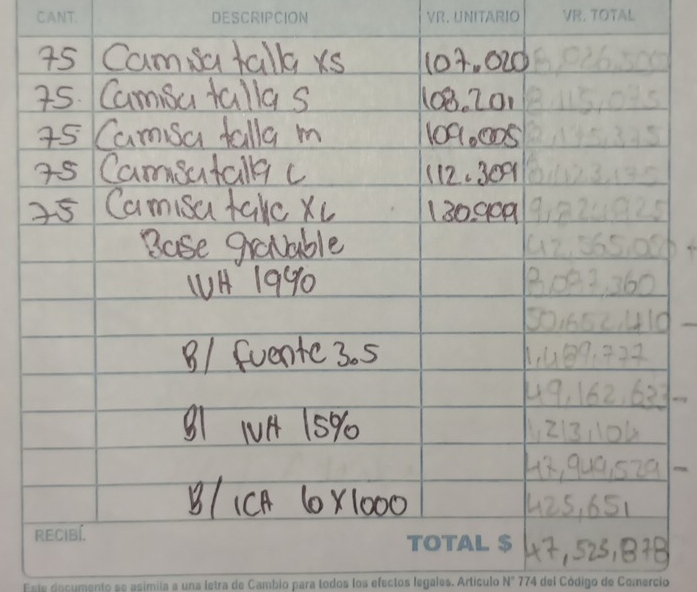 CANT. DESCRIPCION VR. UNITARIO VR. TOTAL
75 Camisa talla xs 107.020 8,026,500
75 Camisa talla S 108.201 8,115,075
75 Camisa talla m 109.005 8,175,375
75 Camisa talla L 112.309 8,423,175
75 Camisa talla XL 130.909 9,824,825
Base gravable 42,565,0 +
IVA 19% 8,087,360
50,652,410 -
R/ fuente 3.5 1,489,777
49,162,633 -
R/ IVA 15% 1,213,104
47,949,529 -
R/ ICA 10 X 1000 425,651
RECIBÍ. TOTAL $ 47,525,878
Este documento se asimila a una letra de Cambio para todos los efectos legales. Articulo N° 774 del Código de Comercio